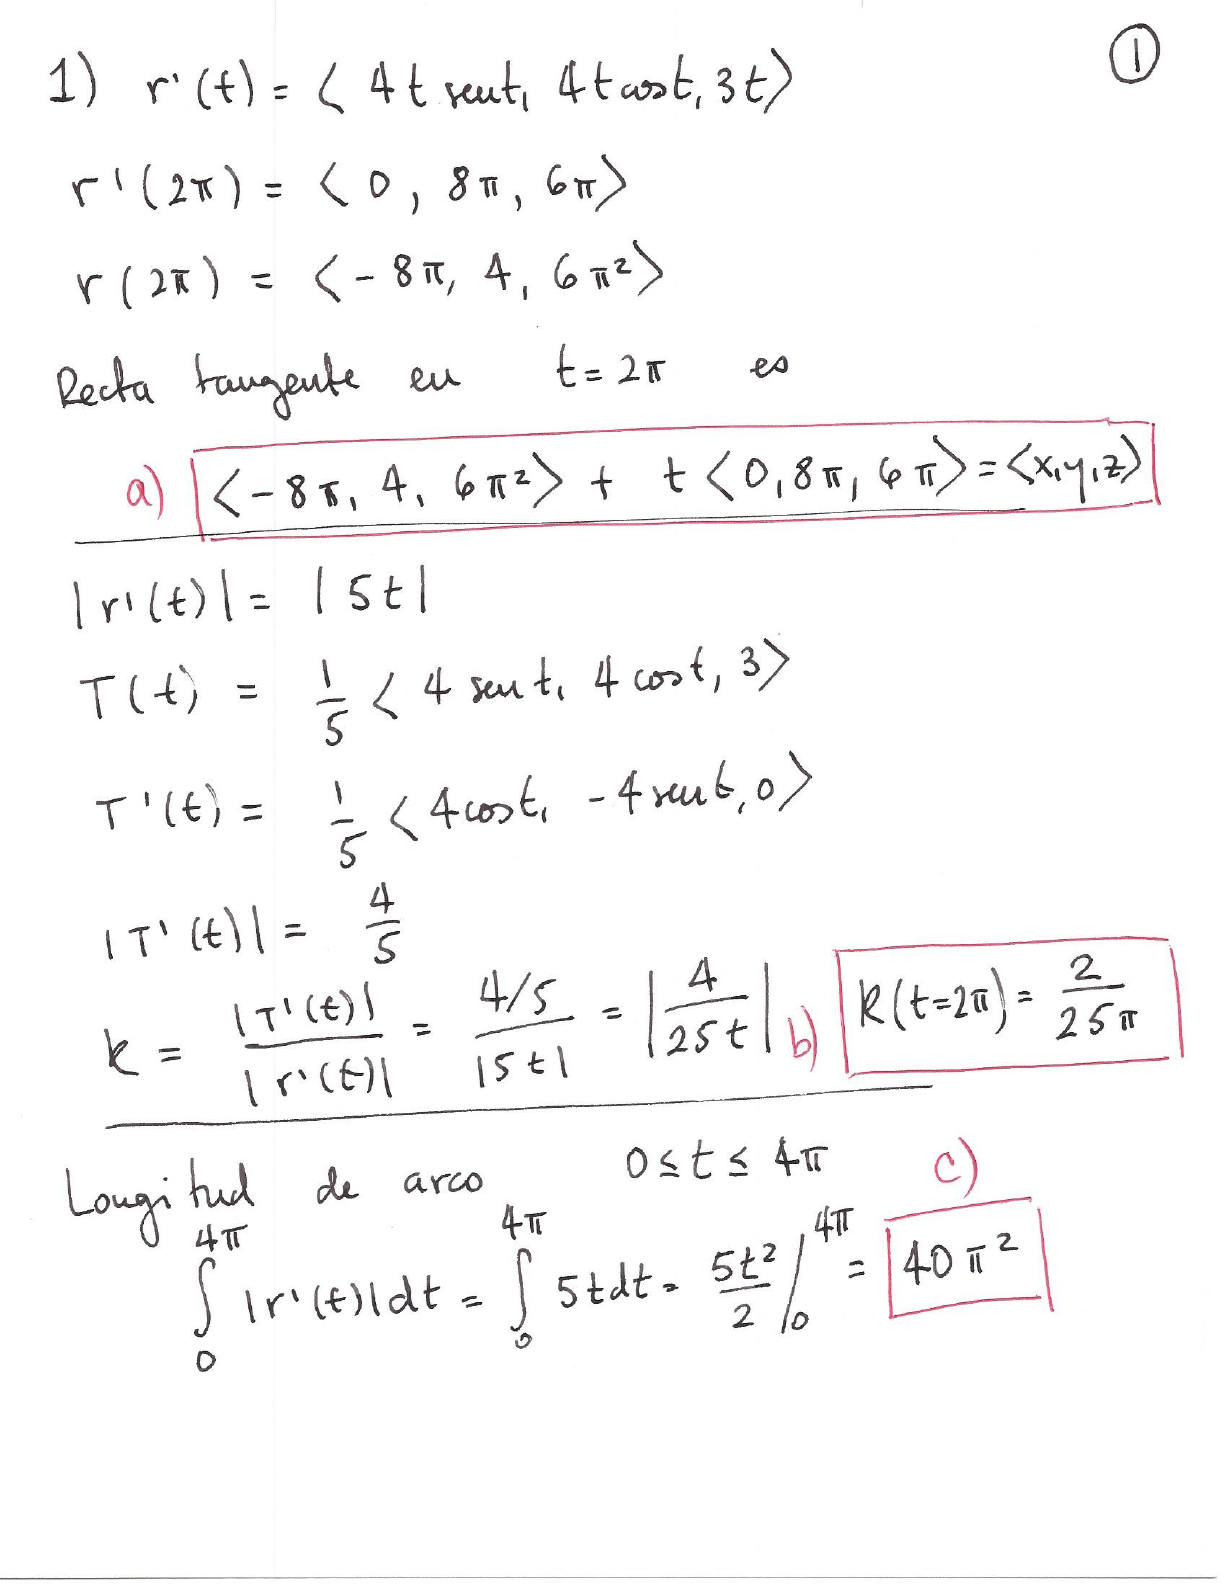 ①
1) r'(t) = ⟨ 4t sent, 4t cost, 3t⟩
r'(2π) = ⟨0, 8π, 6π⟩
r(2π) = ⟨-8π, 4, 6π²⟩
Recta tangente en t=2π es
a) ⟨-8π, 4, 6π²⟩ + t⟨0,8π, 6π⟩=⟨x,y,z⟩
|r'(t)| = |5t|
T(t) = 1/5 ⟨4 sen t, 4 cost, 3⟩
T'(t) = 1/5 ⟨4cost, -4sent, 0⟩
|T'(t)| = 4/5
k = |T'(t)| / |r'(t)| = 4/5 / |5t| = |4/25t| b) k(t=2π) = 2/25π
Longitud de arco 0≤t≤4π c)
∫₀^4π |r'(t)|dt = ∫₀^4π 5tdt = 5t²/2 /₀^4π = 40π²